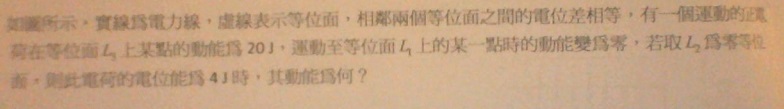 如圖所示，實線爲電力線，虛線表示等位面，相鄰兩個等位面之間的電位差相等，有一個運動的正電
荷在等位面 L₃ 上某點的動能爲 20 J，運動至等位面 L₁ 上的某一點時的動能變爲零，若取 L₂ 爲零等位
面，則此電荷的電位能爲 4 J 時，其動能爲何？